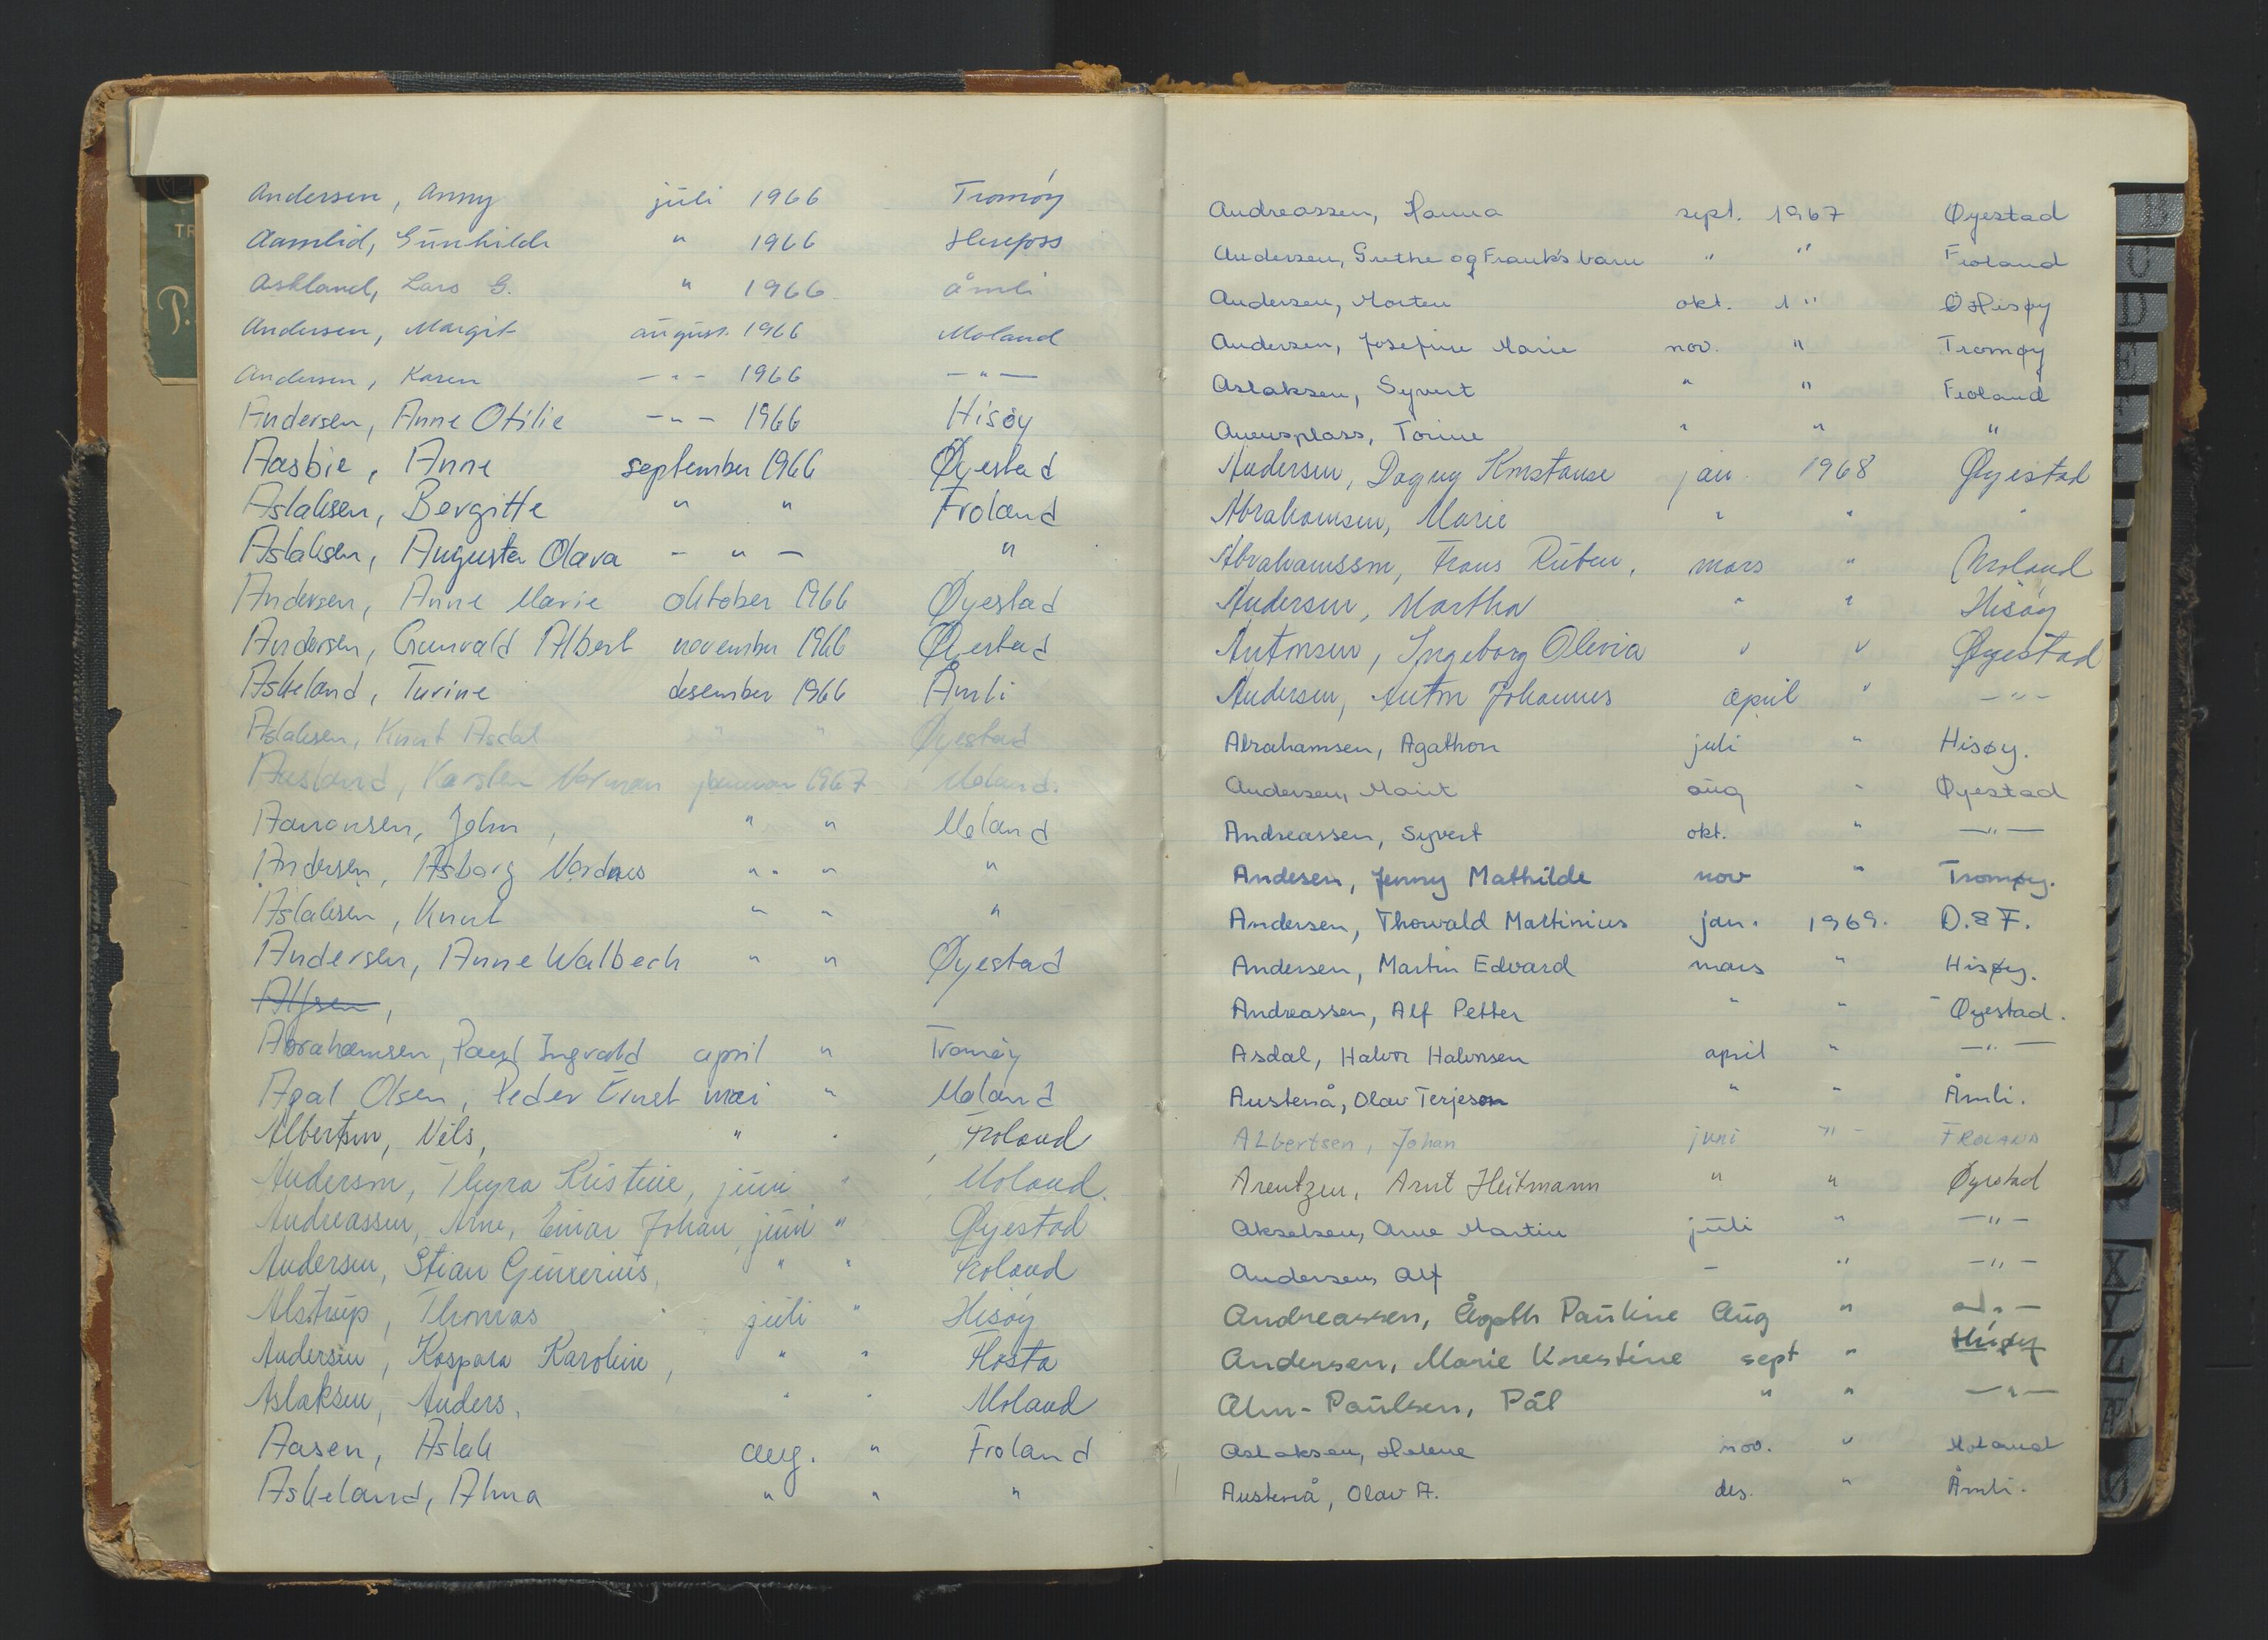 Andersen, Anny juli 1966 Tromøy
Aamlid, Gunhilde " 1966 Herefoss
Askland, Lars G. " 1966 åmli
Andersen, Margit august 1966 Moland
Andersen, Karen - " - 1966 - " -
Andersen, Anne Otilie - " - 1966 Hisøy
Aasbie, Anne september 1966 Øyestad
Aslaksen, Bergitte " " Froland
Aslaksen, Augusta Olava - " - "
Andersen, Anne Marie oktober 1966 Øyestad
Andersen, Gunvald Albert november 1966 Øyestad
Askeland, Turine desember 1966 Åmli
Aslaksen, Knut Asdal " " Øyestad
Ausland, Karsten Norman januar 1967 Moland.
Aanonsen, John, " " Moland
Andersen, Asborg Nordnes " " "
Aslaksen, Knut " " "
Andersen, Anne Walbech " " Øyestad
Alfsen,
Abrahamsen, Paul Ingvald april " Tromøy
Agal Olsen, Peder Ernst mai " Moland
Albertsen, Nils, " " Froland
Andersen, Thyra Kristine, juni " Moland.
Andreassen, Arne, Einar Johan, juni " Øyestad
Andersen, Stian Gunerius, " " Froland
Alstrup, Thomas juli " Hisøy
Andersen, Kaspara Karoline, " " Flosta
Aslaksen, Anders, " " Moland
Aasen, Aslak aug. " Froland
Askeland, Alma " " "
TR
P.
Andreassen, Hanna sept. 1967 Øyestad
Andersen, Grethe og Frank's barn " " Froland
Andersen, Morten okt. 1 " Hisøy
Andersen, Josefine Marie nov. " Tromøy
Aslaksen, Syvert " " Froland
Auensplass, Torine " " "
Andersen, Dagny Konstanse jan 1968 Øyestad
Abrahamsen, Marie " " "
Abrahamssen, Frans Ruben, mars " Moland
Andersen, Martha " " Hisøy
Antonsen, Ingeborg Olevia " " Øyestad
Andersen, Anton Johannes april " - " -
Abrahamsen, Agathon juli " Hisøy.
Andersen, Marit aug " Øyestad
Andreassen, Syvert okt. " - " -
Andesen, Jenny Mathilde nov " Tromøy.
Andersen, Thorvald Martinius jan. 1969. D.8 F.
Andersen, Martin Edvard mars " Hisøy.
Andreassen, Alf Petter " " Øyestad.
Asdal, Halvor Halvorsen april " - " -
Austenå, Olav Terjeson " " Åmli.
Albertsen, Johan juni " - FROLAND
Arentzen, Arnt Heitmann " " Øyestad
Akselsen, Arne Martin juli " - " -
Andersen, Alf - " - " -
Andreassen, Ågoth Pauline Aug " - " -
Andersen, Marie Krestine sept " Hisøy
Alm-Paulsen, Pål " " - " -
Aslaksen, Helene nov. " Moland
Austenå, Olav A. des. " Åmli.
B
C
D
E
F
V
X
Y
Z
Æ
Ø